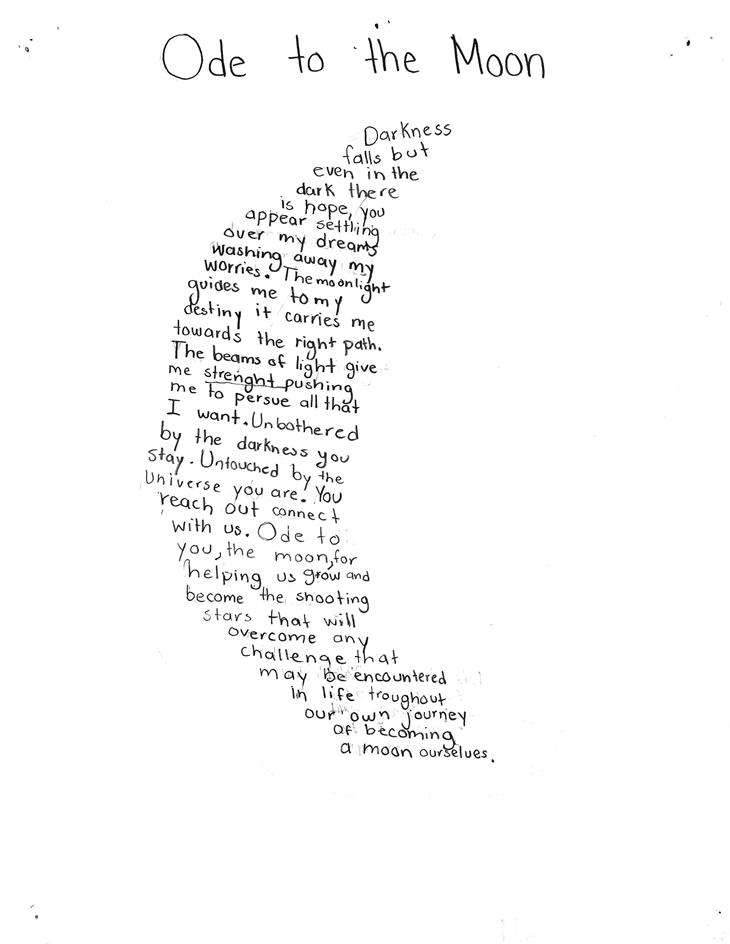 Ode to the Moon
Darkness
falls but
even in the
dark there
is hope, you
appear settling
over my dreams
washing away my
worries. The moonlight
guides me to my
destiny it carries me
towards the right path.
The beams of light give
me strenght pushing
me to persue all that
I want. Unbothered
by the darkness you
stay. Untouched by the
Universe you are. You
reach out connect
with us. Ode to
you, the moon, for
helping us grow and
become the shooting
stars that will
overcome any
challenge that
may be encountered
in life troughout
our own journey
of becoming
a moon ourselves.